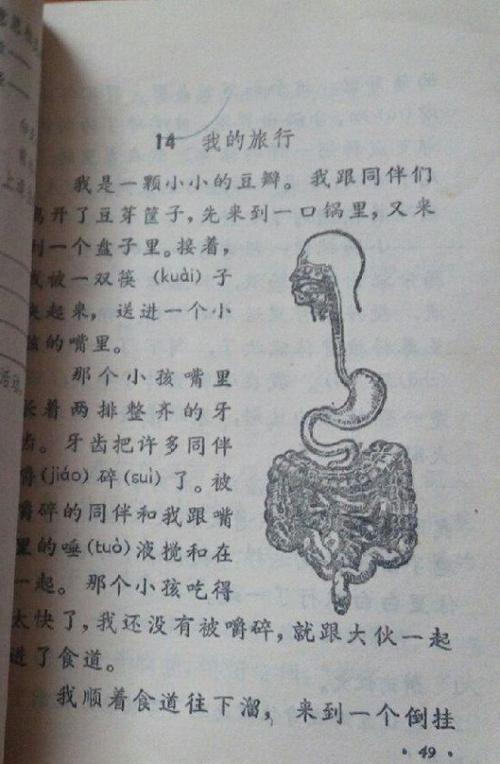 14 我的旅行
我是一颗小小的豆瓣。我跟同伴们
离开了豆芽筐子，先来到一口锅里，又来
到一个盘子里。接着，
我被一双筷（kuài）子
夹起来，送进一个小
孩的嘴里。
那个小孩嘴里
长着两排整齐的牙
齿。牙齿把许多同伴
嚼（jiáo）碎（suì）了。被
嚼碎的同伴和我跟嘴
里的唾（tuò）液搅和在
一起。那个小孩吃得
太快了，我还没有被嚼碎，就跟大伙一起
进了食道。
我顺着食道往下溜，来到一个倒挂
· 49 ·